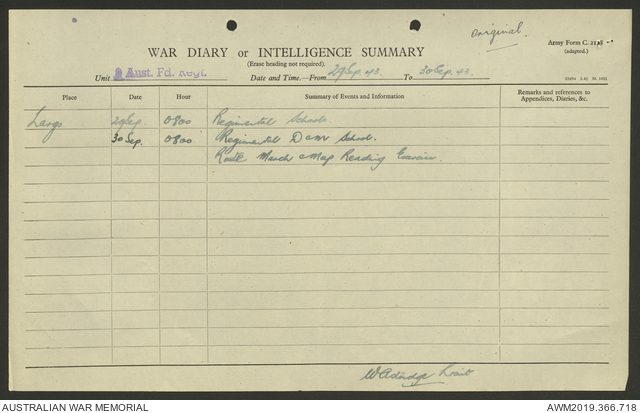 Original.
Army Form C. 2118
(adapted.)
WAR DIARY or INTELLIGENCE SUMMARY
(Erase heading not required).
Unit Aust. Fd. Regt. Date and Time.—From 29 Sep. 43. To 30 Sep. 43.
Place Date Hour Summary of Events and Information Remarks and references to Appendices, Diaries, &c.
Largs 29 Sep. 0800 Regimental Schools
30 Sep. 0800 Regimental D & M School.
Route March & Map Reading Exercise.
Lieut
AUSTRALIAN WAR MEMORIAL AWM2019.366.718